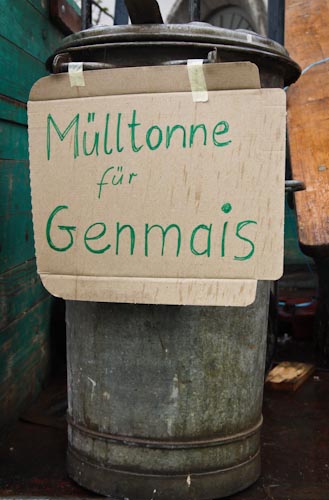 Mülltonne
für
Genmais